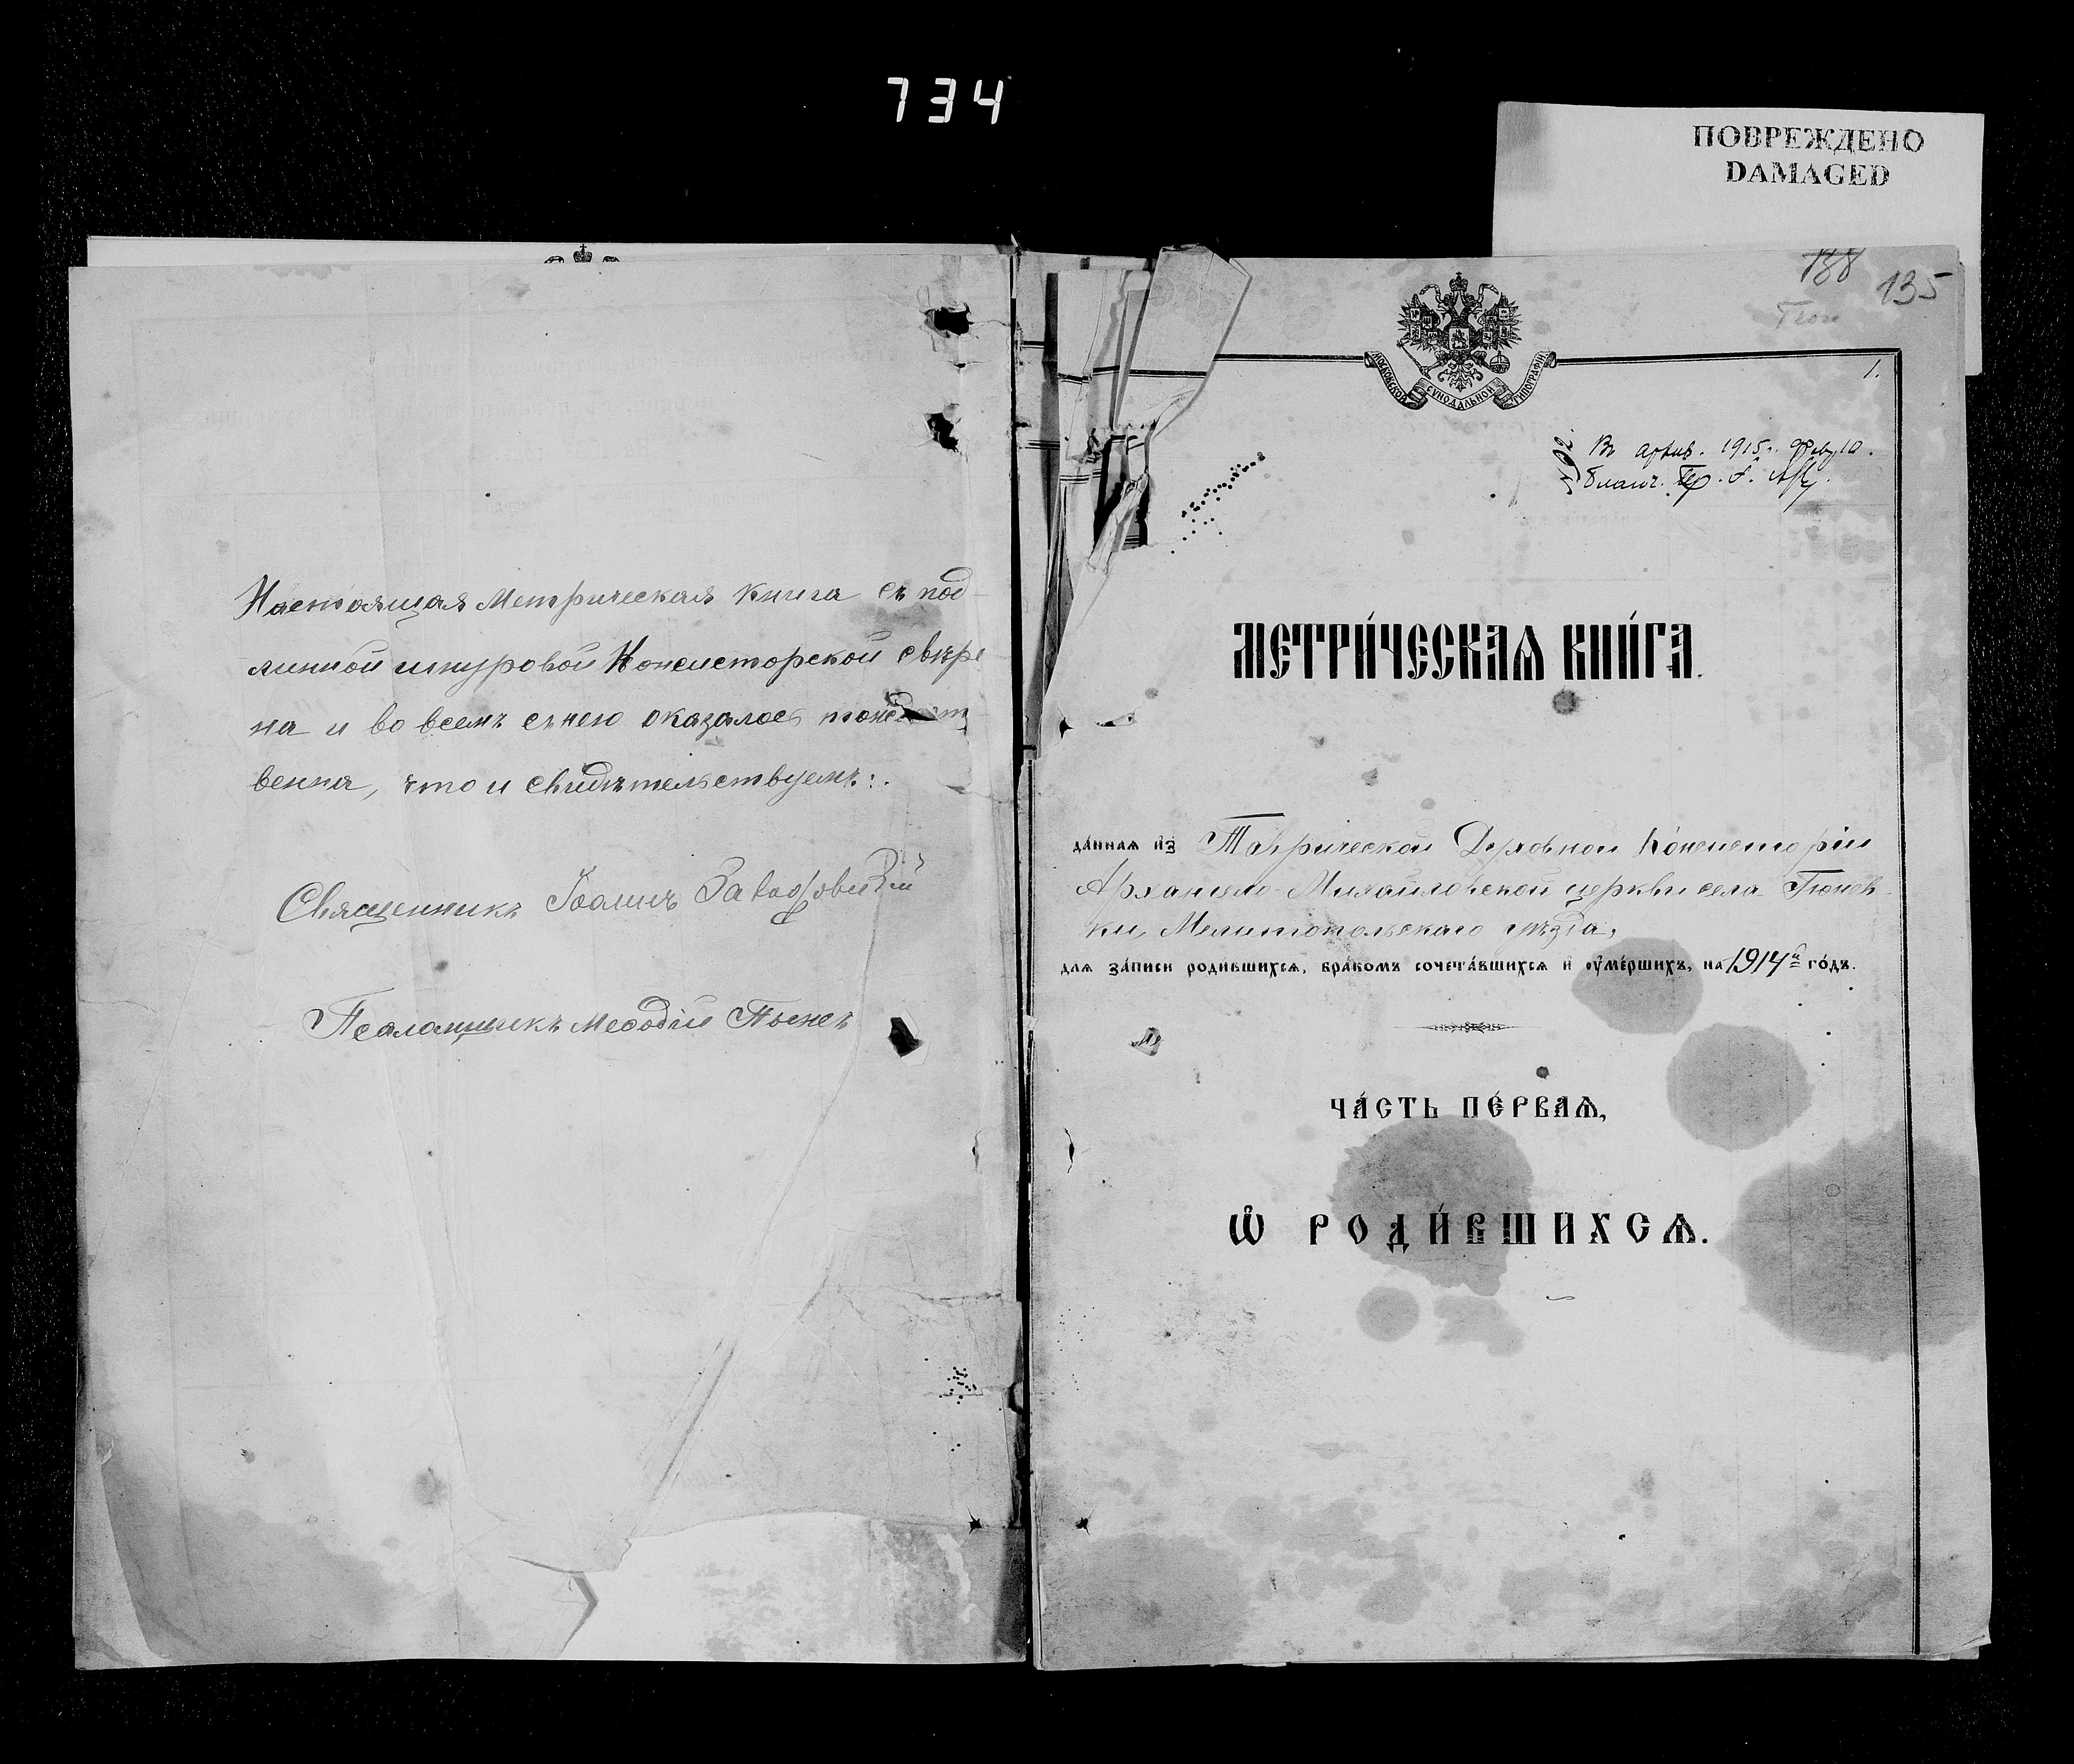 734
ПОВРЕЖДЕНО
DAMAGED
Настоящая Метрическая книга съ под
линной шнуровой Консисторской свѣре
на и во всемъ съ нею оказалось тождест
венна, что и свидѣтельствуемъ:.
Священникъ Іоаннъ
Псаломщикъ Меѳодій
188 135
1.
МОСКОВСКОЙ СѴНОДАЛЬНОЙ ТИПОГРАФІИ
Въ архив. 1915 г. Фев. 10.
МЕТРИ́ЧЕСКАѦ КНИ́ГА.
да́ннаѧ и҆з Таврической Духовной Консисторіи
Архангело-Михайловской церкви села Тюнев
ки, Мелитопольскаго уѣзда,
длѧ за́писи роди́вшихсѧ, бра́комъ сочета́вшихсѧ и҆ оу҆ме́ршихъ, на 1914й го́дъ.
ЧА́СТЬ ПЕ́РВАѦ,
Ѡ҆ РОДИ́ВШИХСѦ.